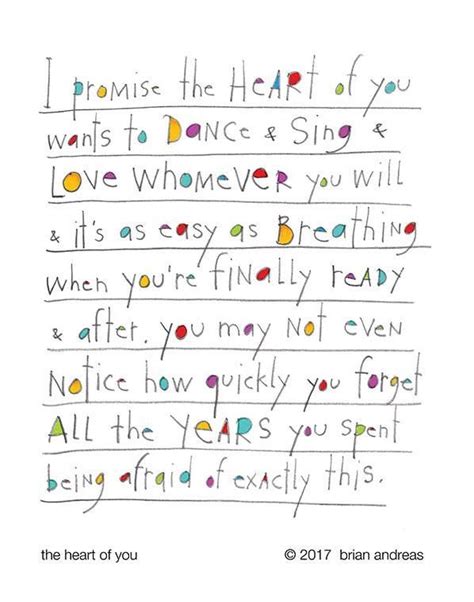 I promise the HEART of you
wants to DANCE & Sing &
LOVE WHOMEVER you will
& it's as easy as Breathing
when you're fiNAlly reADy
& after, you may NOT eveN
Notice how quickly you forget
All the YEARS you spent
being afraid of exActly this.
the heart of you
© 2017 brian andreas